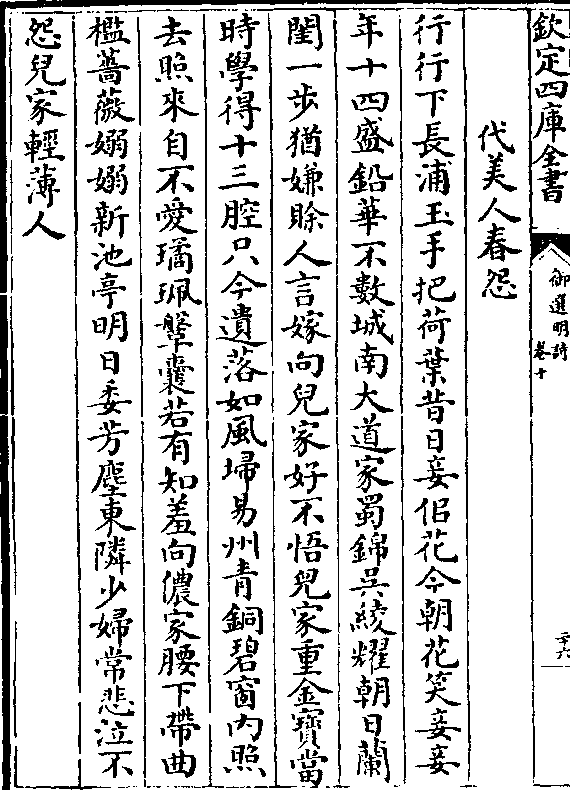 欽定四庫全書
御選明詩
卷十
二十六
代美人春怨
行行下長浦玉手把荷葉昔日妾佀花今朝花笑妾妾
年十四盛鉛華不數城南大道家蜀錦吳綾耀朝日蘭
閨一步猶嫌賒人言嫁向兒家好不悟兒家重金寶當
時學得十三腔只今遺落如風埽易州青銅碧窗内照
去照來自不愛璚珮鞶囊若有知羞向儂家腰下帶曲
檻薔薇嫋嫋新池亭明日委芳塵東隣少婦常悲泣不
怨兒家輕薄人